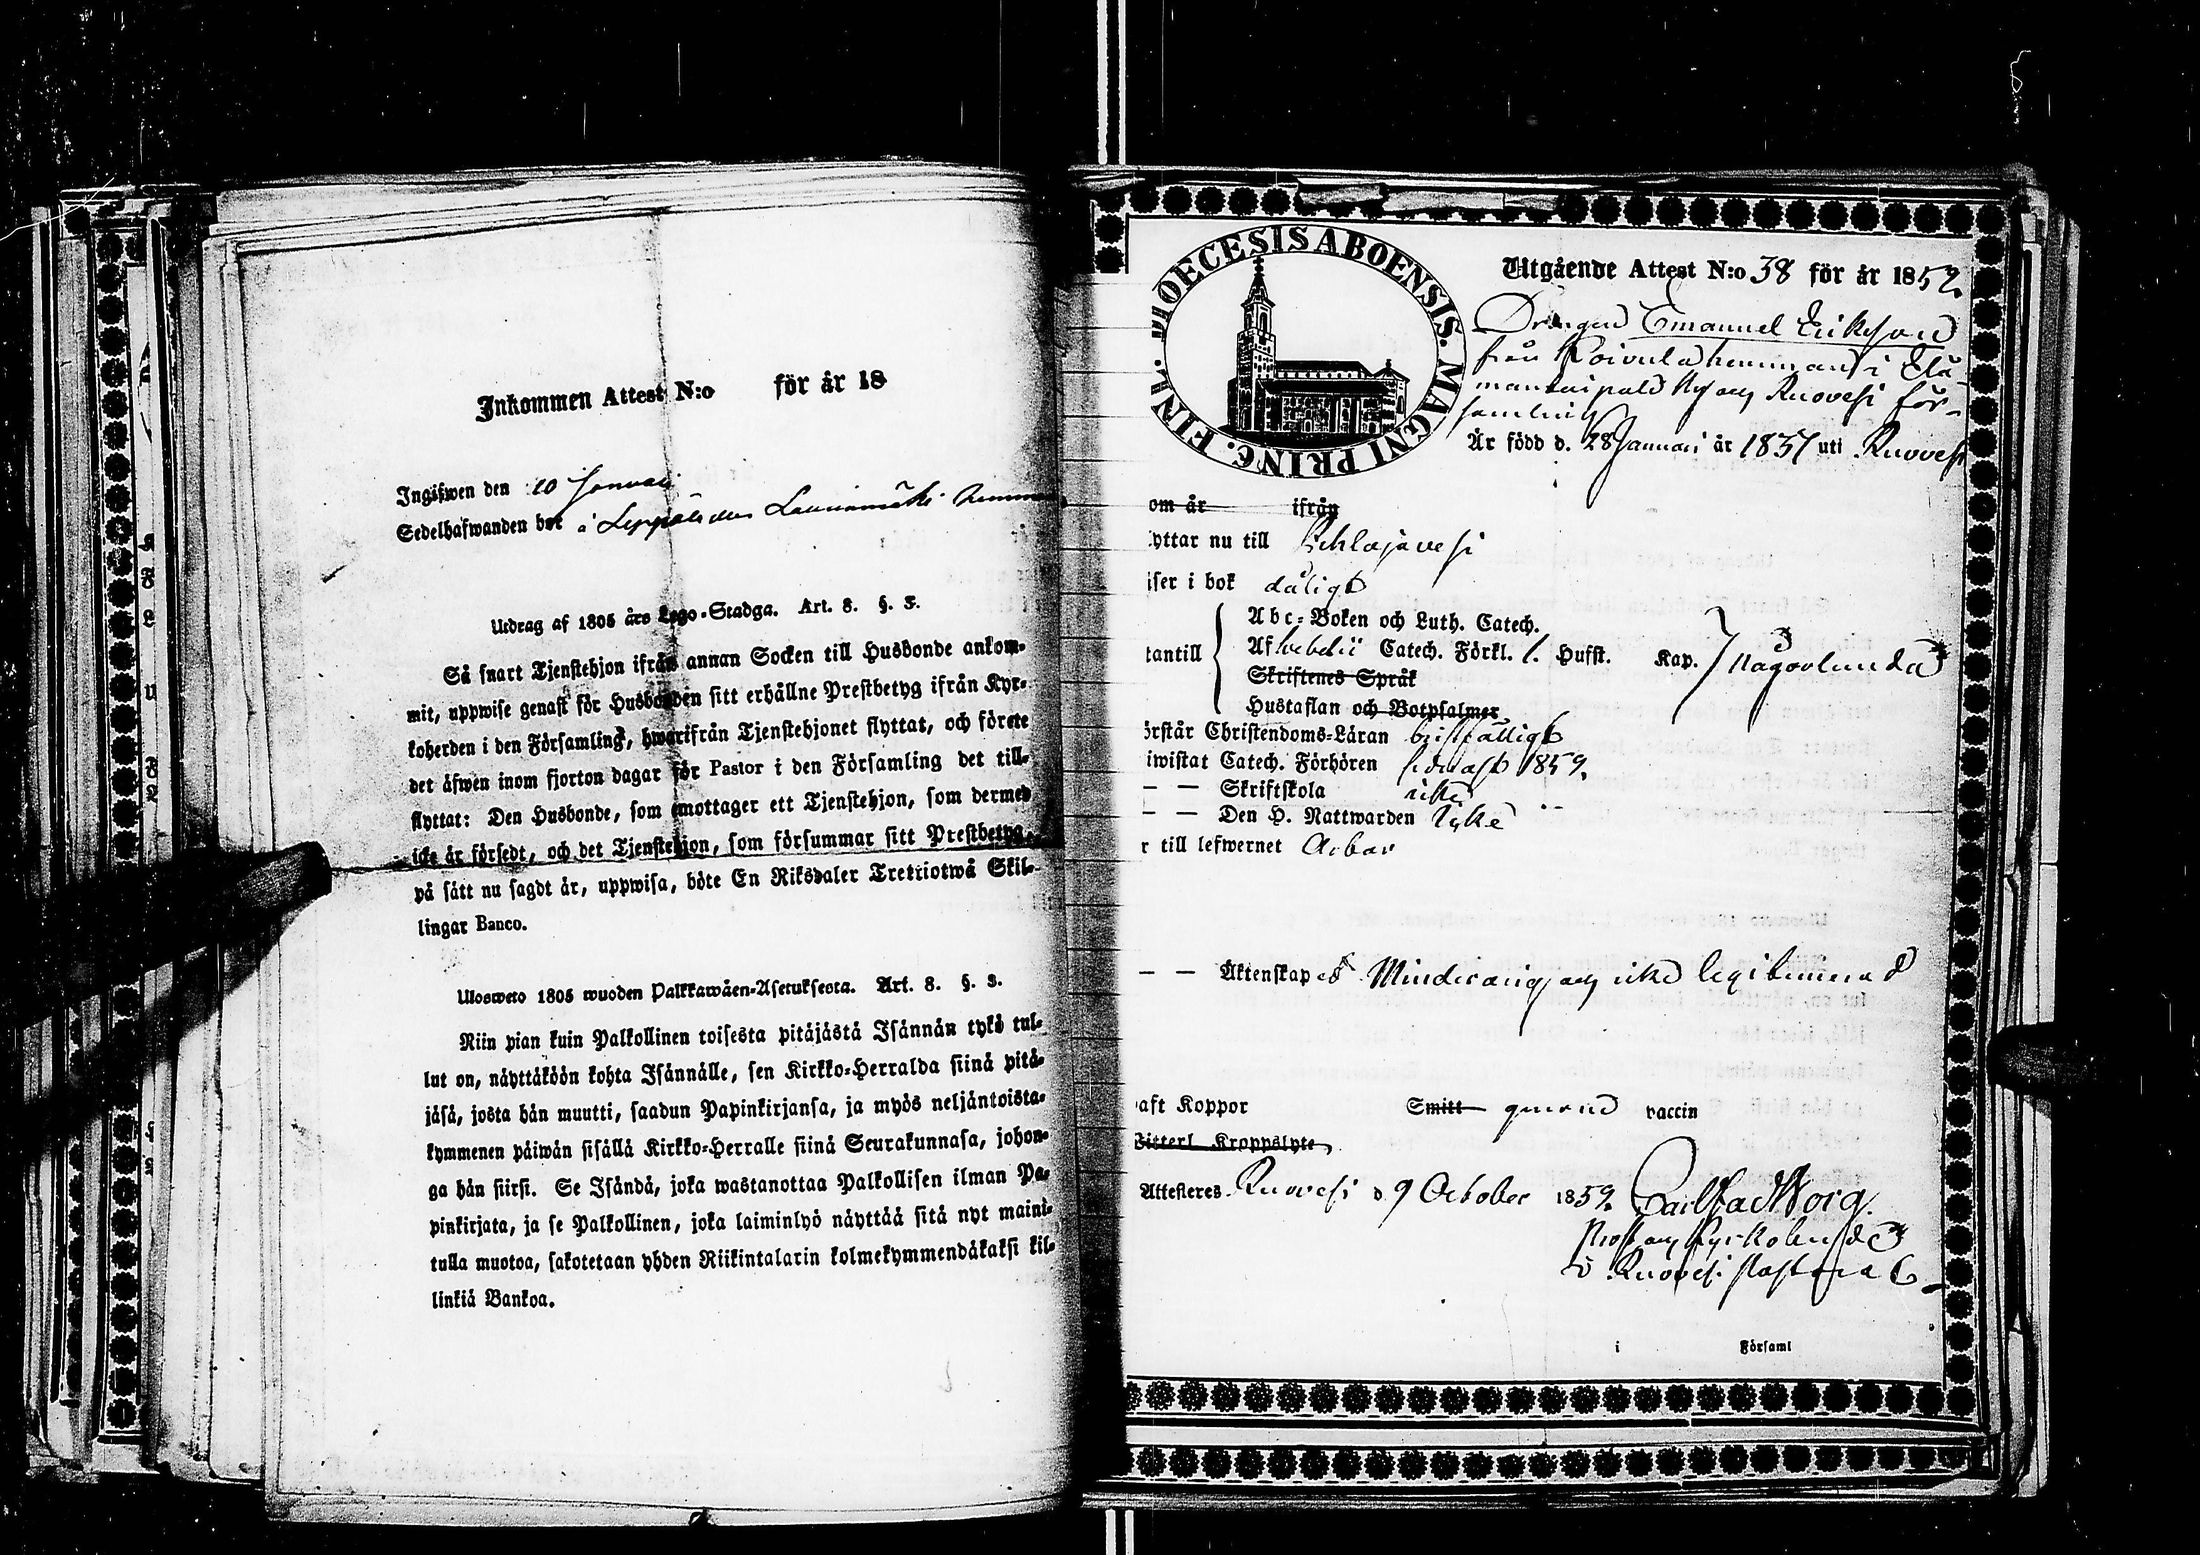 Inkommen Attest N:o för år 18
Ingifwen den 10 Januari
Sedelhafwanden bor å Leppälä Lauriomäki hemman
Utdrag af 1805 års Lego-Stadga. Art. 8. §. 3.
Så snart Tjenstehjon ifrån annan Socken till Husbonde ankom-
mit, uppwise genast för Husbonden sitt erhållne Prestbetyg ifrån Kyr-
koherden i den Församling, hwarifrån Tjenstehjonet flyttat, och förete
det äfwen inom fjorton dagar för Pastor i den Församling det till-
flyttat: Den Husbonde, som emottager ett Tjenstehjon, som dermed
icke är försedt, och det Tjenstehjon, som försummar sitt Prestbetyg,
på sätt nu sagdt är, uppwisa, böte En Riksdaler Trettiotwå Skil-
lingar Banco.
Ulosweto 1805 wuoden Palkkawäen-Asetuksesta. Art. 8. §. 3.
Niin pian kuin Palkollinen toisesta pitäjästä Isännän tykö tul-
lut on, näyttäköön kohta Isännälle, sen Kirkko-Herralda siinä pitä-
jäsä, josta hän muutti, saadun Papinkirjansa, ja myös neljäntoista-
kymmenen päiwän sisällä Kirkko-Herralle siinä Seurakunnasa, johon-
ga hän siirsi. Se Isändä, joka wastanottaa Palkollisen ilman Pa-
pinkirjata, ja se Palkollinen, joka laiminlyö näyttää sitä nyt maini-
tulla muotoa, sakotetaan yhden Riikintalarin kolmekymmendäkaksi kil-
linkiä Bankoa.
DIOECESIS ABOENSIS. MAGNI PRINC. FINL.
Utgående Attest N:o 38 för år 1859.
Drengen Emanuel Erikson
från Koivula hemman i
by och Ruovesi för-
samling
Är född d. 28 Januari år 1837 uti Ruovesi
om år ifrån
yttar nu till Pihlajavesi
iser i bok dåligt
Abc-Boken och Luth. Catech.
tantill Af Svebelii Catech. Förkl. 1. Hufst. Kap. Någorlunda
Skriftenes Språk
Hustaflan och Botpsalmer
örstår Christendoms-Läran bristfälligt
iwistat Catech. Förhören sednast 1859.
— — Skriftskola icke
— — Den H. Nattwarden icke
r till lefwernet Ärbar
— — Äktenskap Minderårig och icke legitimerad
aft Koppor Smitt genom vaccin
Zitterl. Kroppslyte
Attesteres Ruovesi d. 9 October 1859. Carl
Prost och Kyrkoherde
i Ruovesi Pastorat
i Församl